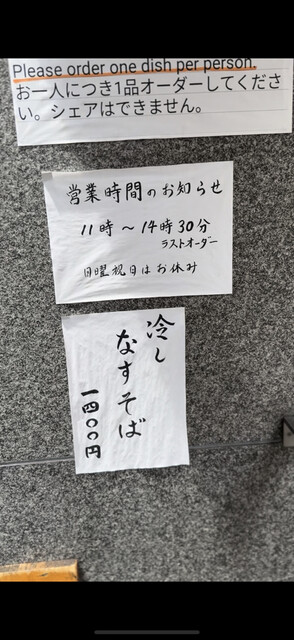 Please order one dish per person.
お一人につき1品オーダーしてくださ
い。シェアはできません。
営業時間のお知らせ
11時～14時30分
ラストオーダー
日曜祝日はお休み
冷し
なすそば
一四〇〇円